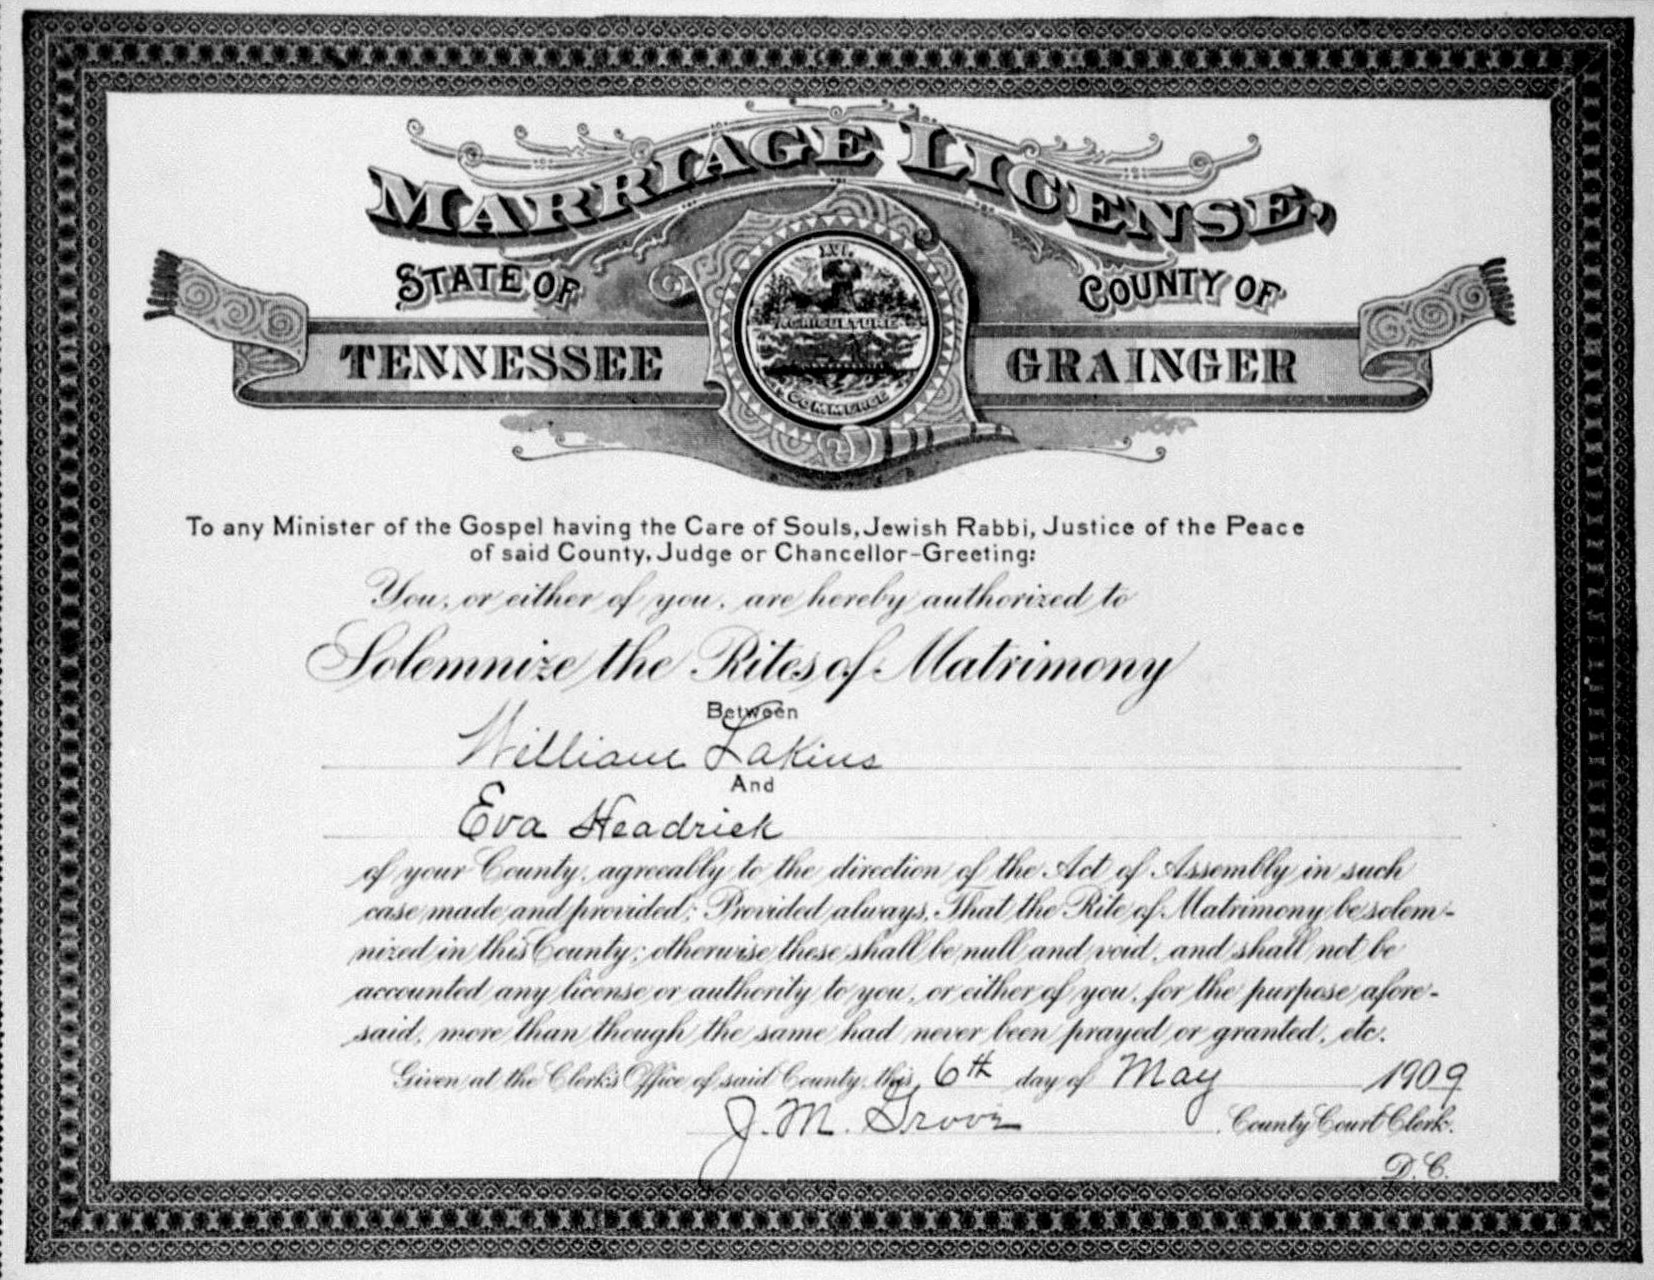 MARRIAGE LICENSE,
STATE OF
COUNTY OF
TENNESSEE
GRAINGER
XVI.
AGRICULTURE
COMMERCE
To any Minister of the Gospel having the Care of Souls, Jewish Rabbi, Justice of the Peace
of said County, Judge or Chancellor-Greeting:
You, or either of you, are hereby authorized to
Solemnize the Rites of Matrimony
Between
William Lakins
And
Eva Headrick
of your County, agreeably to the direction of the Act of Assembly in such
case made and provided; Provided always, That the Rite of Matrimony be solem-
nized in this County; otherwise these shall be null and void, and shall not be
accounted any license or authority to you, or either of you, for the purpose afore-
said, more than though the same had never been prayed or granted, etc.
Given at the Clerk's Office of said County, this 6th day of May 1909
J. M. Grove County Court Clerk.
D. C.